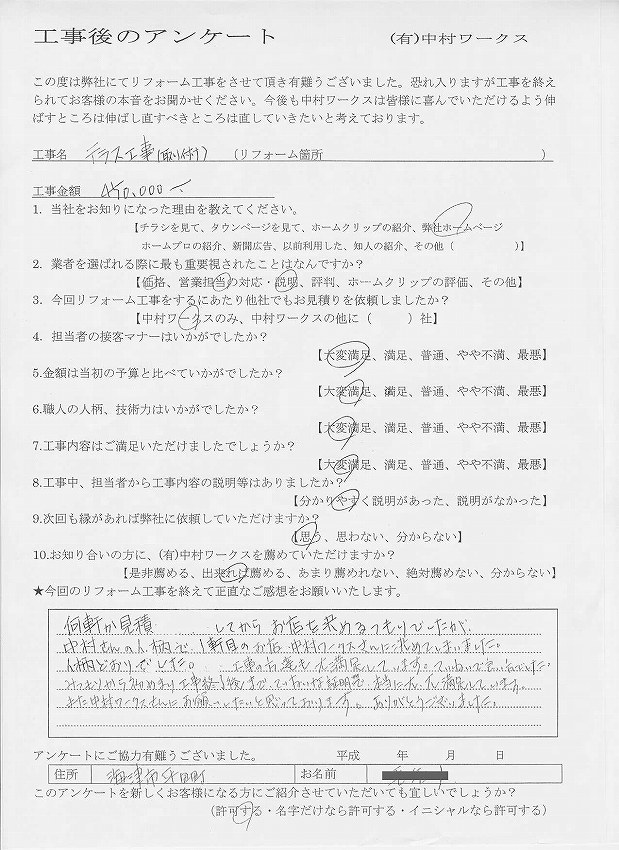 工事後のアンケート (有)中村ワークス
この度は弊社にてリフォーム工事をさせて頂き有難うございました。恐れ入りますが工事を終え
られてお客様の本音をお聞かせください。今後も中村ワークスは皆様に喜んでいただけるよう伸
ばすところは伸ばし直すべきところは直していきたいと考えております。
工事名 テラス工事(取り付け) (リフォーム箇所 )
工事金額 450,000
1. 当社をお知りになった理由を教えてください。
【チラシを見て、タウンページを見て、ホームクリップの紹介、弊社ホームページ
ホームプロの紹介、新聞広告、以前利用した、知人の紹介、その他( )】
2. 業者を選ばれる際に最も重要視されたことはなんですか？
【価格、営業担当の対応・説明、評判、ホームクリップの評価、その他】
3. 今回リフォーム工事をするにあたり他社でもお見積りを依頼しましたか？
【中村ワークスのみ、中村ワークスの他に( )社】
4. 担当者の接客マナーはいかがでしたか？
【大変満足、満足、普通、やや不満、最悪】
5.金額は当初の予算と比べていかがでしたか？
【大変満足、満足、普通、やや不満、最悪】
6.職人の人柄、技術力はいかがでしたか？
【大変満足、満足、普通、やや不満、最悪】
7.工事内容はご満足いただけましたでしょうか？
【大変満足、満足、普通、やや不満、最悪】
8.工事中、担当者から工事内容の説明等はありましたか？
【分かりやすく説明があった、説明がなかった】
9.次回も縁があれば弊社に依頼していただけますか？
【思う、思わない、分からない】
10.お知り合いの方に、(有)中村ワークスを薦めていただけますか？
【是非薦める、出来れば薦める、あまり薦めれない、絶対薦めない、分からない】
★今回のリフォーム工事を終えて正直なご感想をお願いいたします。
何軒か見積 してからお店を決めるつもりでしたが
中村さんの人柄で、1軒目のお店 中村ワークスさんに決めてしまいました。
人柄どおりでした。 工事の方達も大満足しています。ていねいで
みつもりから始めより工事終了後までていねいな説明で、本当に大、大満足しています。
また中村ワークスさんにお願いしたいと思っております。ありがとうございました。
アンケートにご協力有難うございました。 平成 年 月 日
住所 海津市平田町 お名前
このアンケートを新しくお客様になる方にご紹介させていただいても宜しいでしょうか？
(許可する・名字だけなら許可する・イニシャルなら許可する)